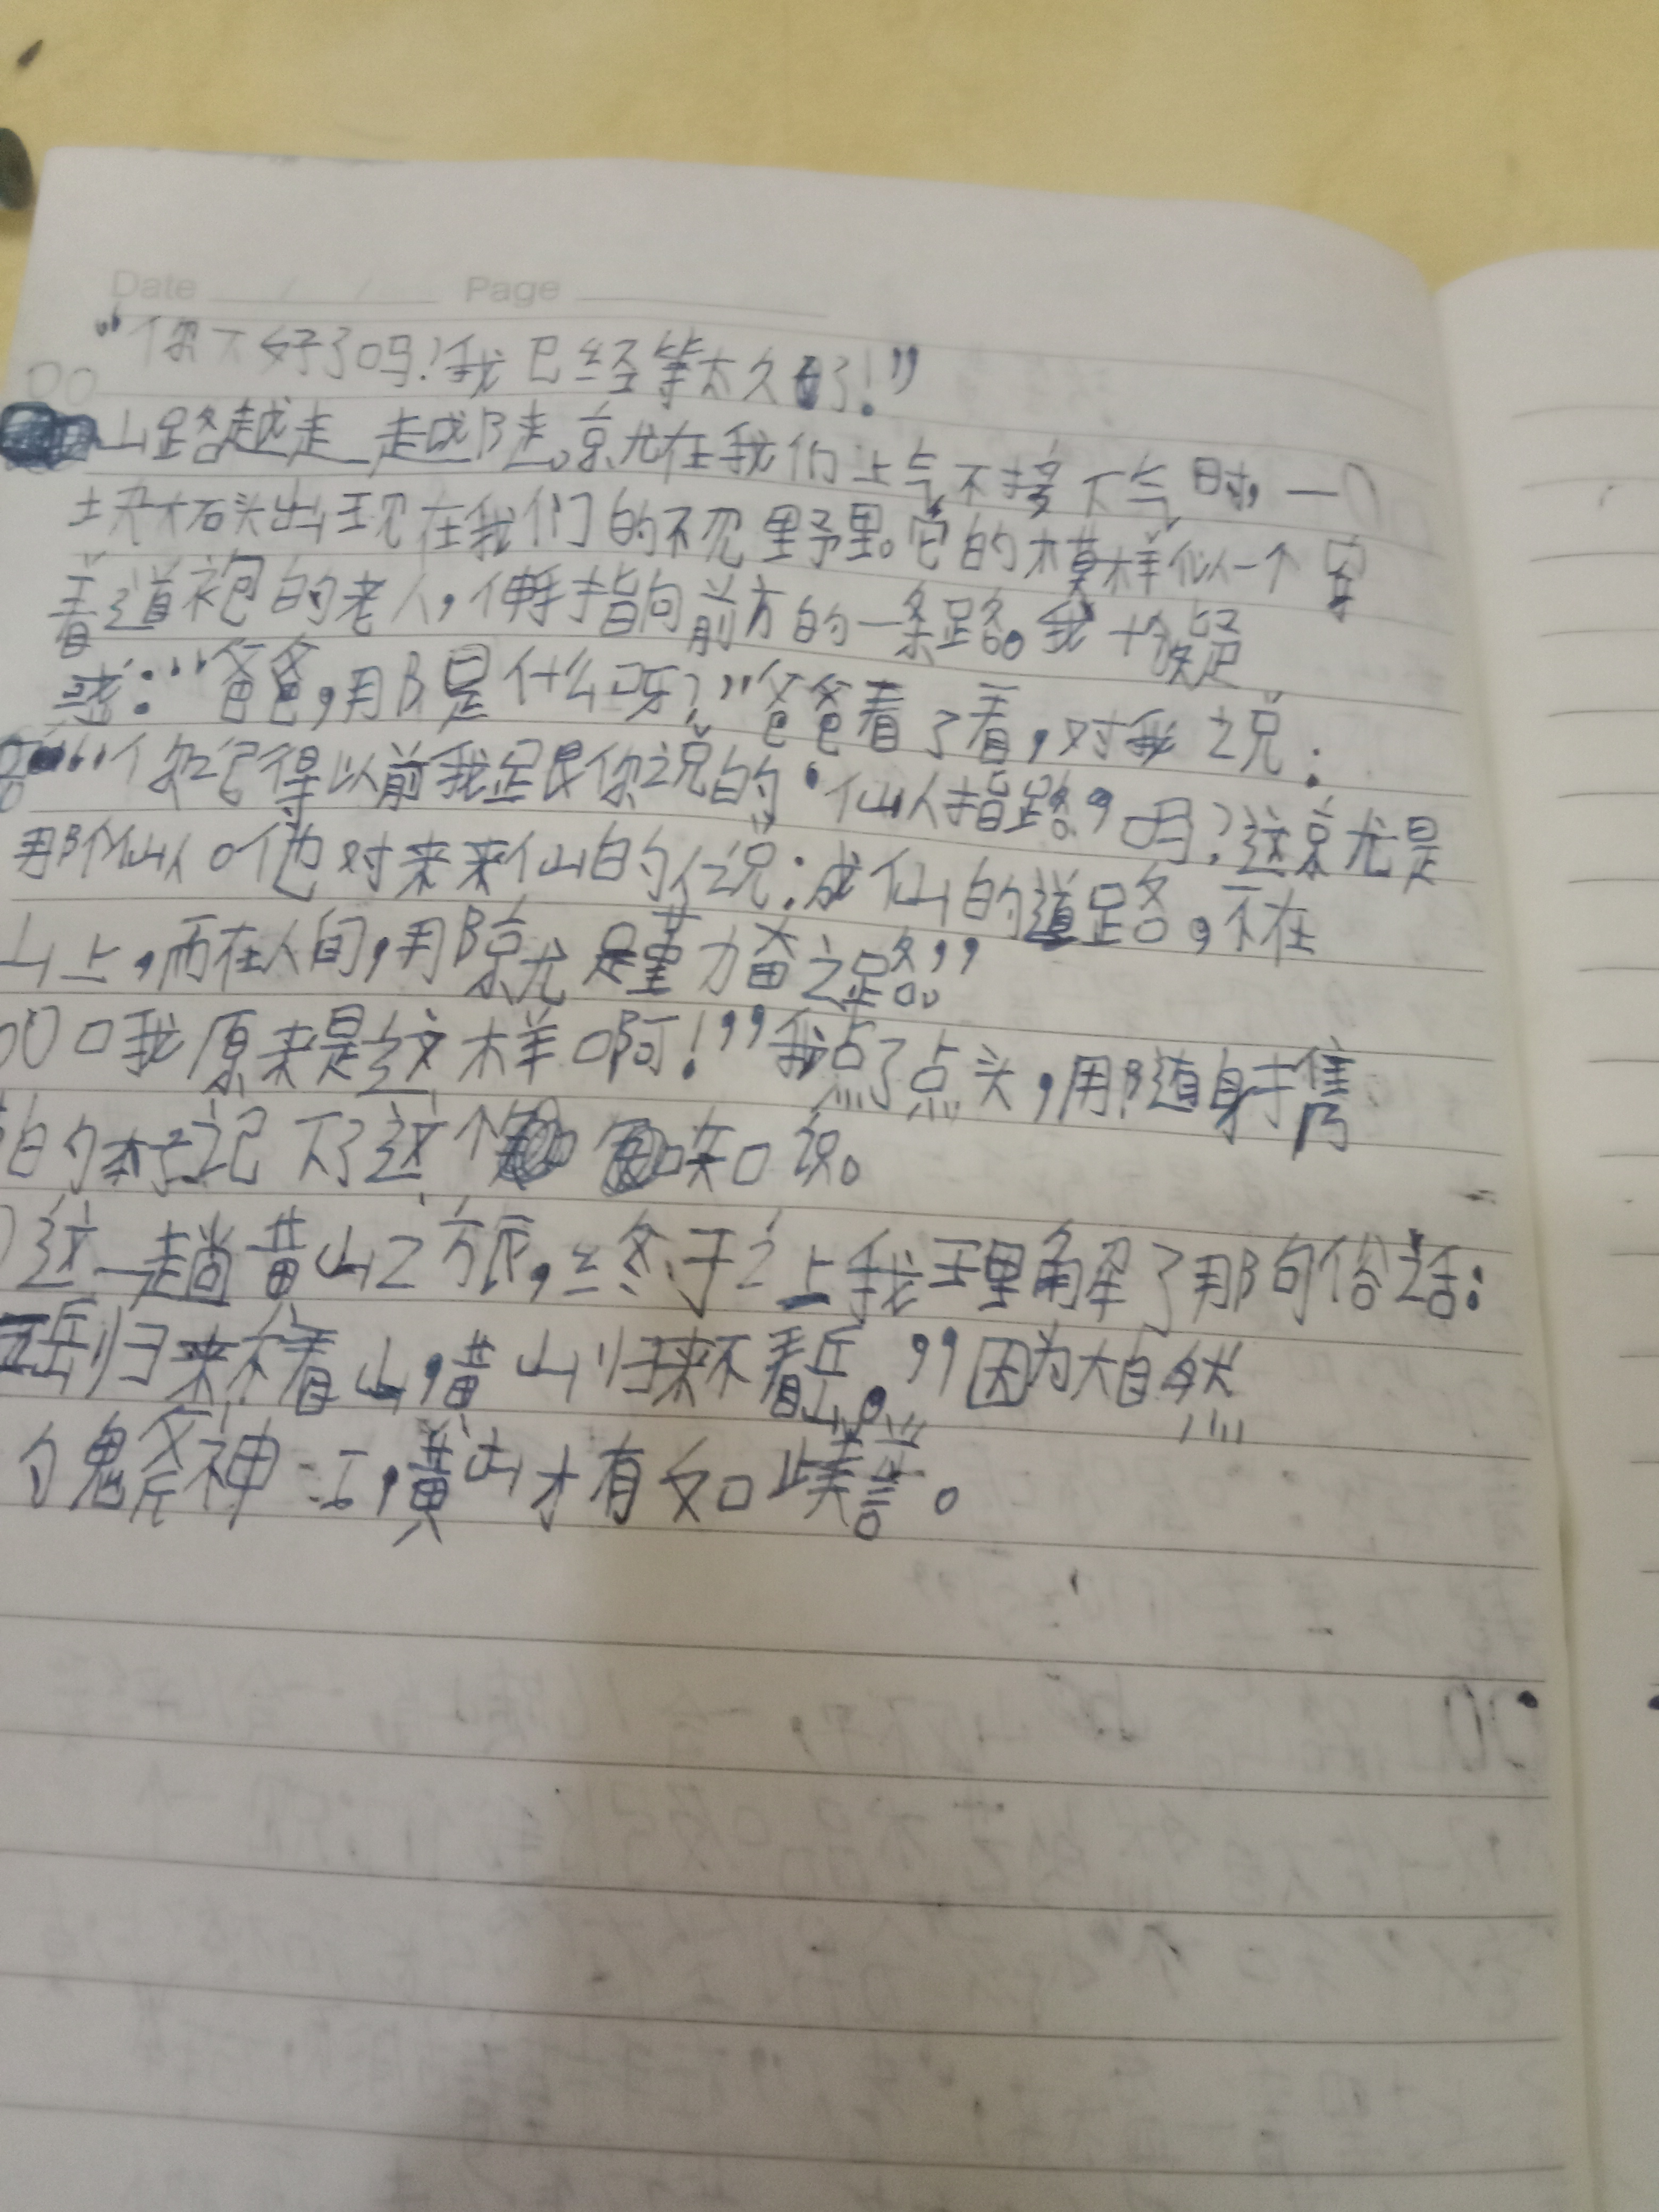 Date / / Page
“你下好了吗？我已经等太久了！”
山路越走越陡。就在我们上气不接下气时，一
块石头出现在我们的视野里。它的模样似一个穿
着道袍的老人，伸手指向前方的一条路。我十分疑
惑：“爸爸，那是什么呀？”爸爸看了看，对我说：
“你记得以前我跟你说的‘仙人指路’吗？这就是
那个仙人。他对来求仙的人说：成仙的道路，不在
山上，而在人间，那就是勤奋之路。”
“哦，原来是这样啊！”我点了点头，用随身携
的本子记下了这个知识。
这一趟黄山之旅，终于让我理解了那句俗话：
五岳归来不看山，黄山归来不看岳。”因为大自然
的鬼斧神工，黄山才有如此美誉。